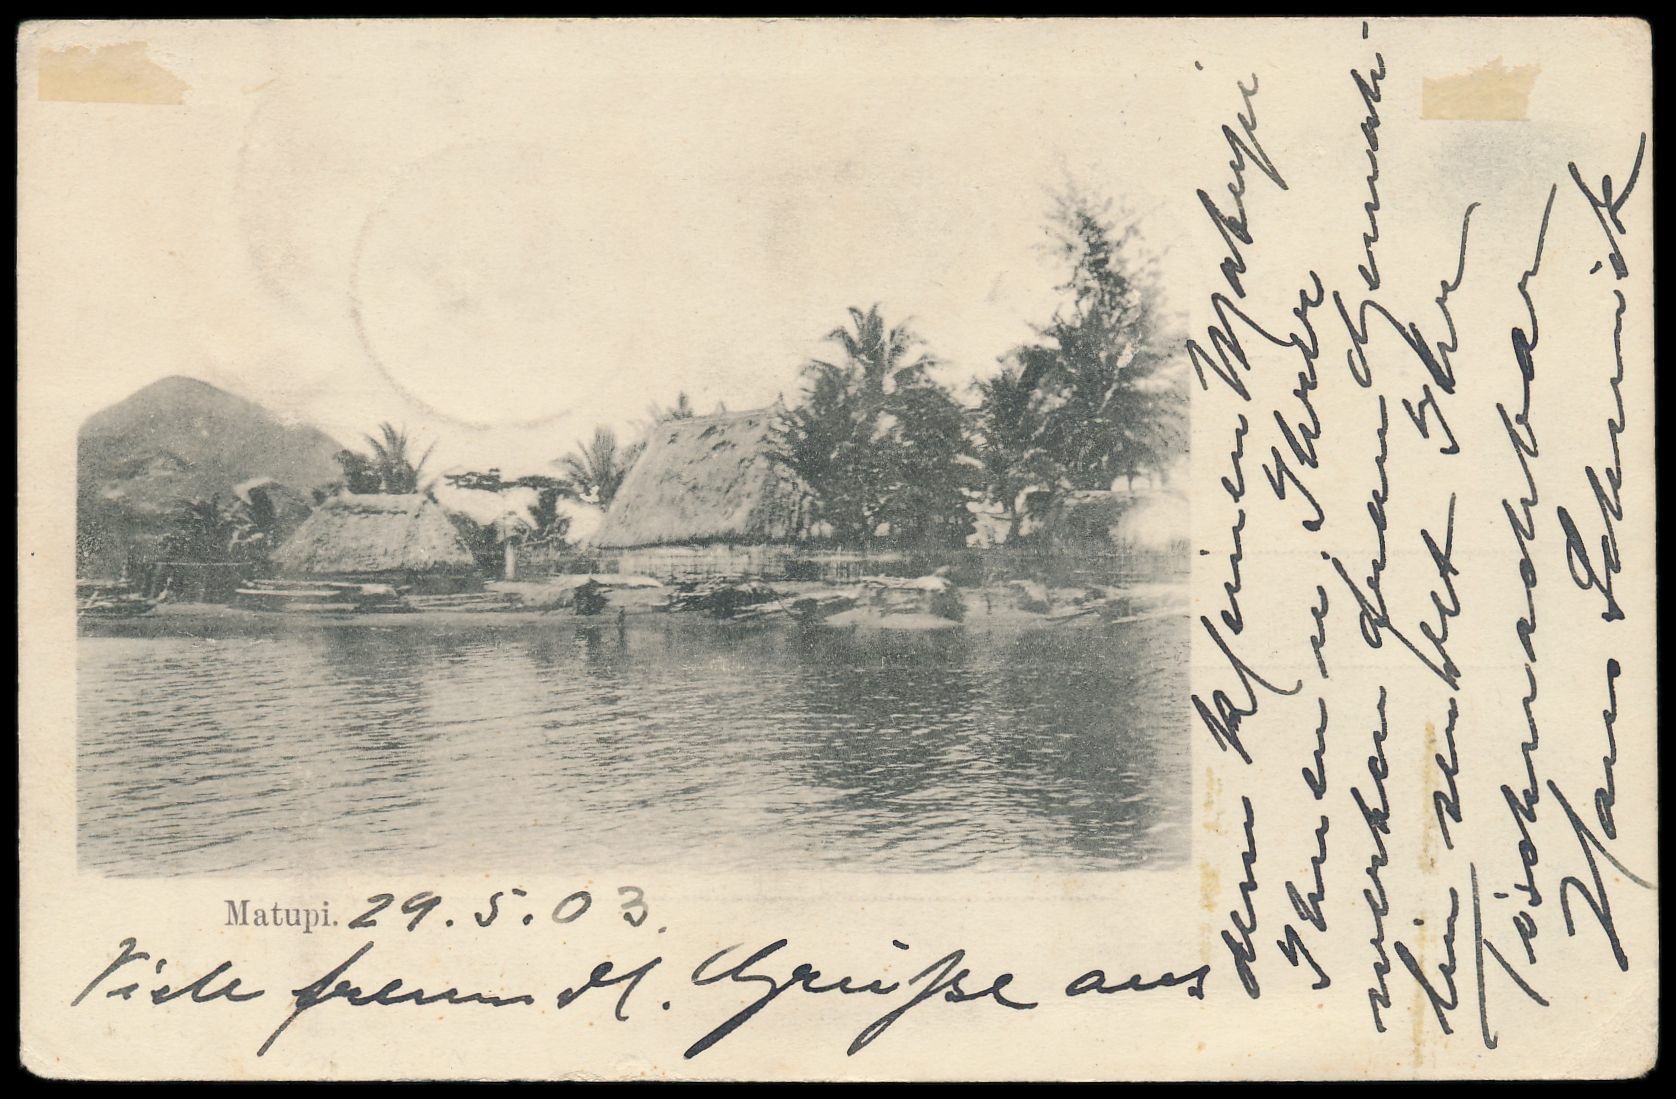 Matupi. 29. 5. 03.
Viele freundl. Grüße aus
dem kleinen Matupi
Ihnen u. Ihrer
werten Frau Gemah-
lin sendet Ihr
Tischnachbar
Hans